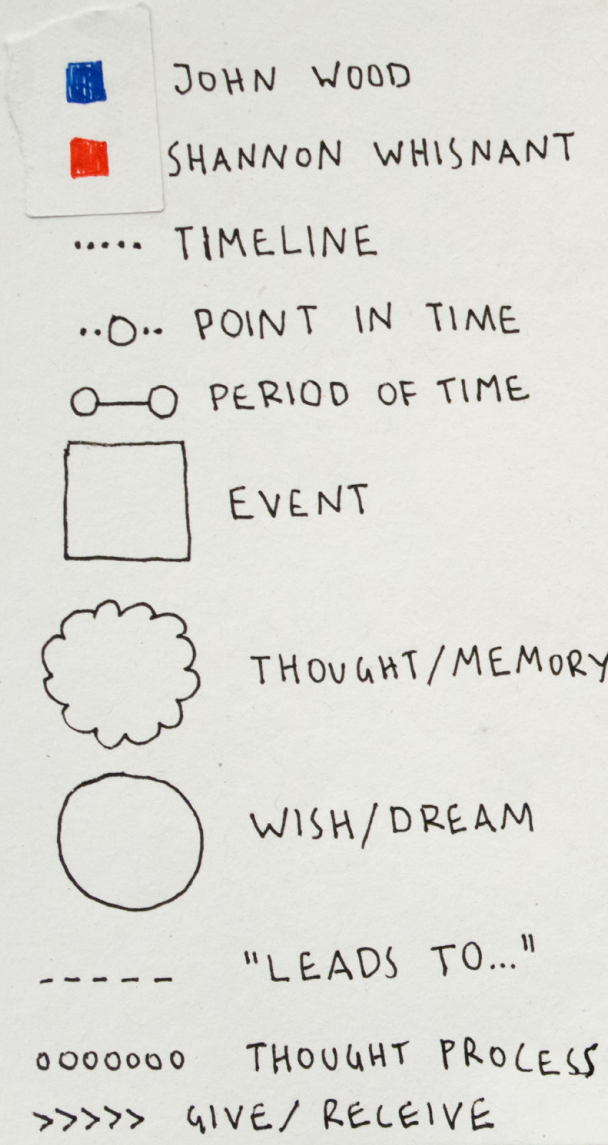 JOHN WOOD
SHANNON WHISNANT
TIMELINE
POINT IN TIME
PERIOD OF TIME
EVENT
THOUGHT/MEMORY
WISH/DREAM
"LEADS TO..."
THOUGHT PROCESS
GIVE/RECEIVE